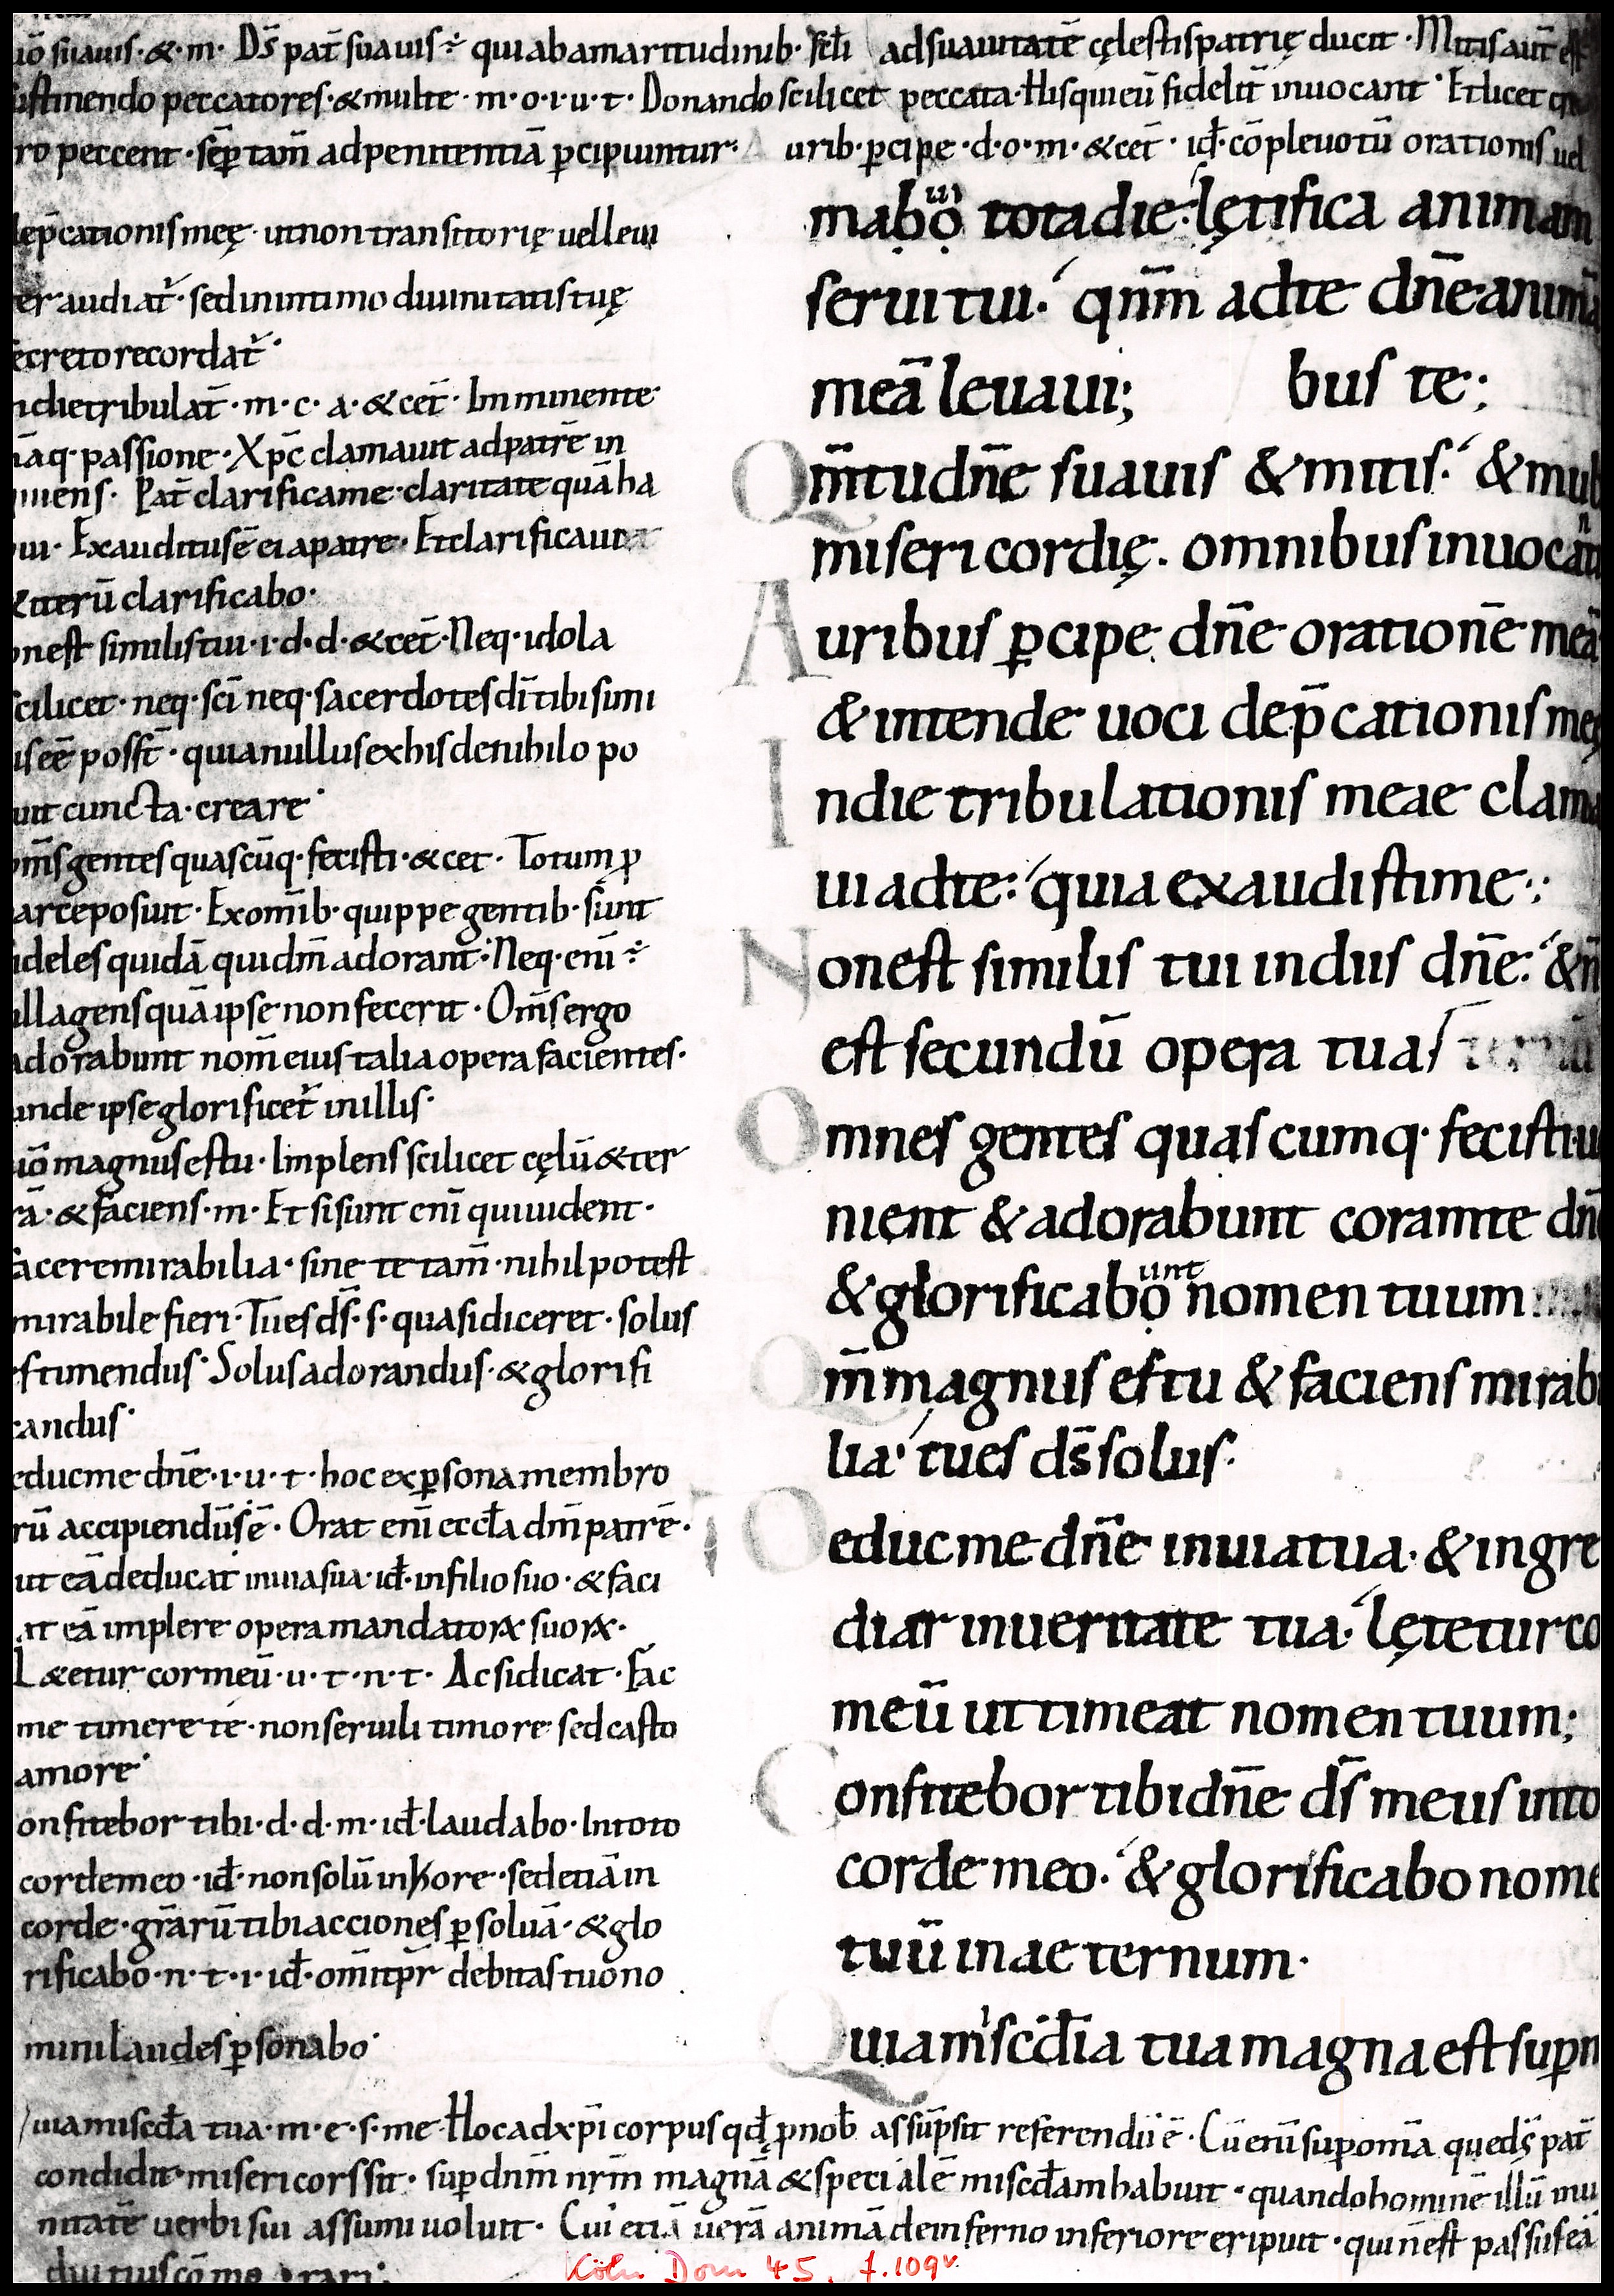 suauis·&·m· Ds̄ pat̄ suauis÷ quiabamaritudinib· sc̄li adsuauitatē cęlestispatrię ducit· Mitisaut̄ est
peccatores·&multe·m·o·i·u·t· Donando scilicet peccata·Hisquieū fidelit̄ inuocant· Etlicet
ro peccent·sēp tam̄ adpenitentiā pcipiuntur· A urib·pcipe·d·o·m·&cet̄· id̄·cōpleuotū orationis uel
dep̄cationismeę· utnontransitorię uelleui
er audiat̄·sedinintimo diuinitatistuę
ecretorecordat̄·
ndietribulat̄·m·c·a·&cet̄· Imminente
passione·Xp̄c clamauit adpatrē in
Pat̄ clarificame·claritatequāha
ui· Exauditusē eiapatre· Etclarificaui
&iterū clarificabo·
onest similistui·i·d·d·&cet̄·Neq·idola
scilicet·neq·sc̄i neq·sacerdotesdi̅tibisimi
eē poss̄t·quianullusexhisdenihilo po
uit cuncta·creare·
om̄sgentesquascūq·fecisti·&cet· Totum p
arteposuit· Exomīb·quippe gentib·sunt
ideles quidā quidm̄ adorant·Neq·eni̅÷
ullagensquāipse nonfecerit· Om̄sergo
adorabunt nom̄ eius talia opera facientes·
unde ipseglorificet̄ inillis·
magnusestu· Implens scilicet cęlū&ter
rā·&faciens·m· Et sisunt eni̅ quiuident·
faceremirabilia· sine te tam̄·nihilpotest
mirabile fieri· Tuesds̄·s·quasidiceret·solus
estimendus· Solusadorandus·&glorifi
candus·
educme dn̄e·i·u·t·hoc expsonamembro
rū accipiendūsē· Orat eni̅ eccl̄a dm̄ patrē·
ut eādeducat inuiasua·id̄·infiliosuo·&faci
at eā implere opera mandatoꝝ suoꝝ·
Lætetur cormeū·u·t·n·t· Acsidicat· Fac
me timere te·nonseruili timore sedcasto
amore·
onfitebor tibi·d·d·m·id̄·laudabo·Intoto
cordemeo·id̄·nonsolū inhore·sedetiā in
corde·gr̄arū tibiacciones psoluā·&glo
rificabo·n·t·i·id̄·om̄itpr̄ debitastuono
minilaudespsonabo·
mabọ totadie·lętifica animam
seruitui· qnm̄ adte dn̄eanimā
meā leuaui; bus te;
Qm̄tudn̄e suauis &mitis· &mul
misericordię· omnibusinuocan
Auribus pcipe dn̄e orationē meā
&intende uoci dep̄cationismeę
Indie tribulationis meae clama
ui adte: quia exaudistime·:
Nonest similis tui indiis dn̄e: &n̄
est secundū opera tua
Omnes gentes quascumq· fecisti·u
nient &adorabunt coramte dn̄e
&glorificabọunt nomen tuum
Qm̄magnus estu &faciens mirabi
lia· tues ds̄ solus·
Deducme dn̄e inuiatua·&ingre
diar inueritate tua· lęteturco
meū uttimeat nomentuum;
Confitebor tibidn̄e ds̄ meus into
corde meo· &glorificabonome
tuū inaeternum·
Quiamis̄cd̄ia tua magnaestsupm
uiamiscd̄a tua·m·e·s·me·Hocadxp̄i corpus qd̄ pnob̄ assūpsit referendū ē· Cū eni̅supom̄a quęds̄ pat̄
condidit·misericorssit· supdnm̄ nrm̄ magnā &specialē miscd̄amhabuit·quandohominē illū inu
nitatē uerbi sui assumi uoluit· Cui etiā uerā animā deinferno inferiore eripuit·quin̄est passuseā
Köln Dom 45, f.109v